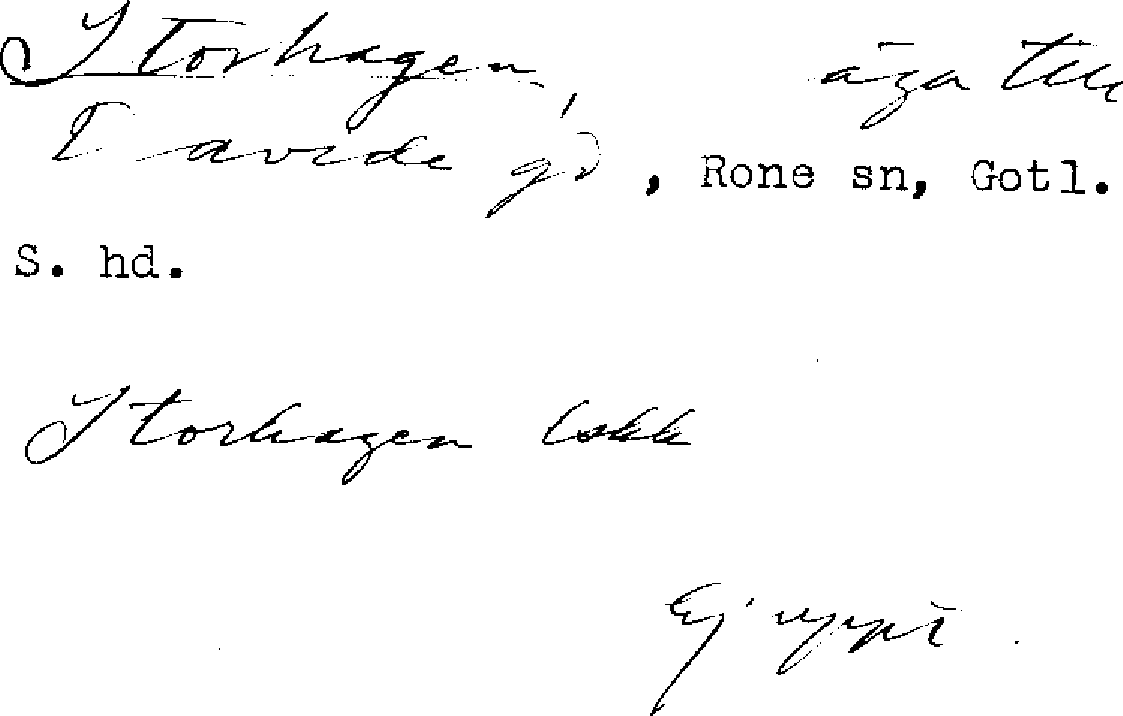 Storhagen, äga till
Tavide gd, Rone sn, Gotl.
S. hd.
Storhagen
Ej uppt